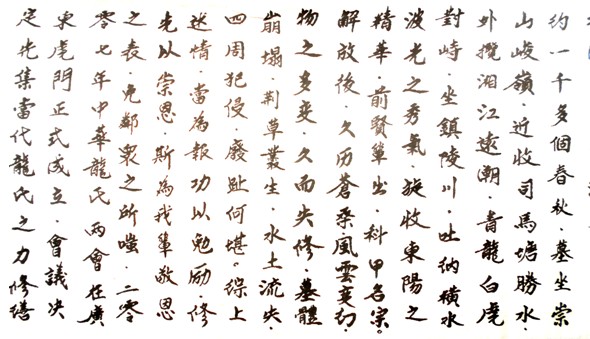 約一千多個春秋．墓坐崇
山峻嶺．近收司馬塘勝水．
外攬湘江遠潮．青龍白虎
對峙．坐鎮陵川．吐納橫水
波光之秀氣．旋收東陽之
精華．前賢輩出．科甲名宗。
解放後．久历蒼桑．風雲变幻．
物之多变．久而失修．墓體
崩塌．荆草叢生．水土流失．
四周犯侵．廢趾何堪。綜上
述情．當為報功以勉励．修
先以崇恩．斯為我輩敬恩
之表．免鄰衆之所嗤．二零
零七年中華龍氏兩會在廣
東虎門正式成立．會議决
定先集當代龍氏之力修繕